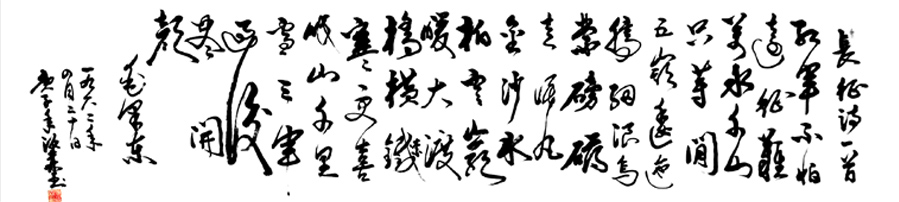 長征诗一首
红軍不怕
遠征難
萬水千山
只等閒
五嶺逶迤
腾細浪烏
蒙磅礴
走泥丸
金沙水
拍雲崖
暖大渡
橋横鐵
寒更喜
岷山千里
雪三軍
过後
盡開
颜
毛澤東
一九六二年
四月二十日
庚子年 書